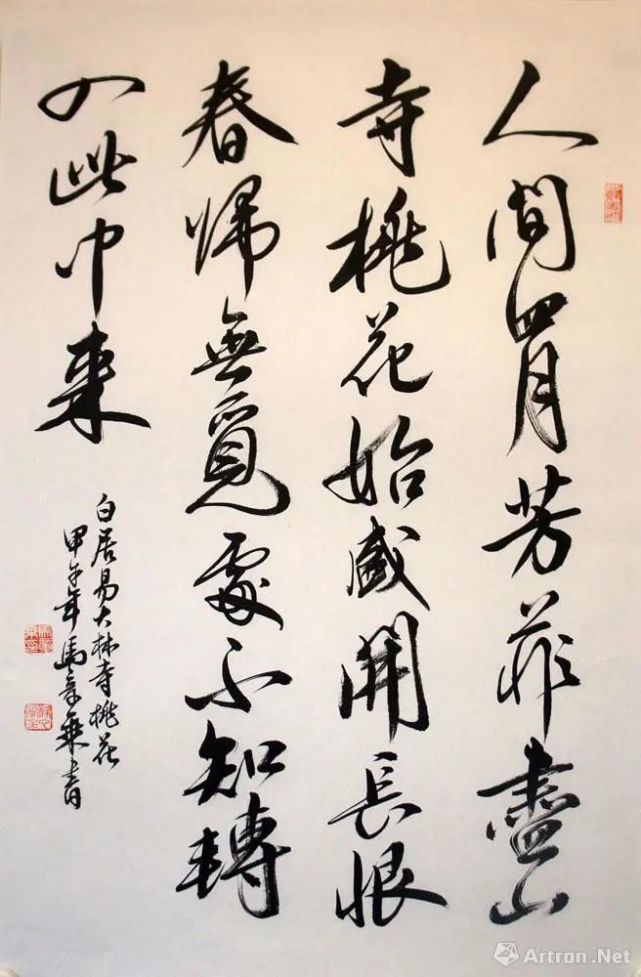 人間四月芳菲盡山
寺桃花始盛開長恨
春歸無覓處不知轉
入此中來
白居易大林寺桃花
甲午年馬
Artron.Net